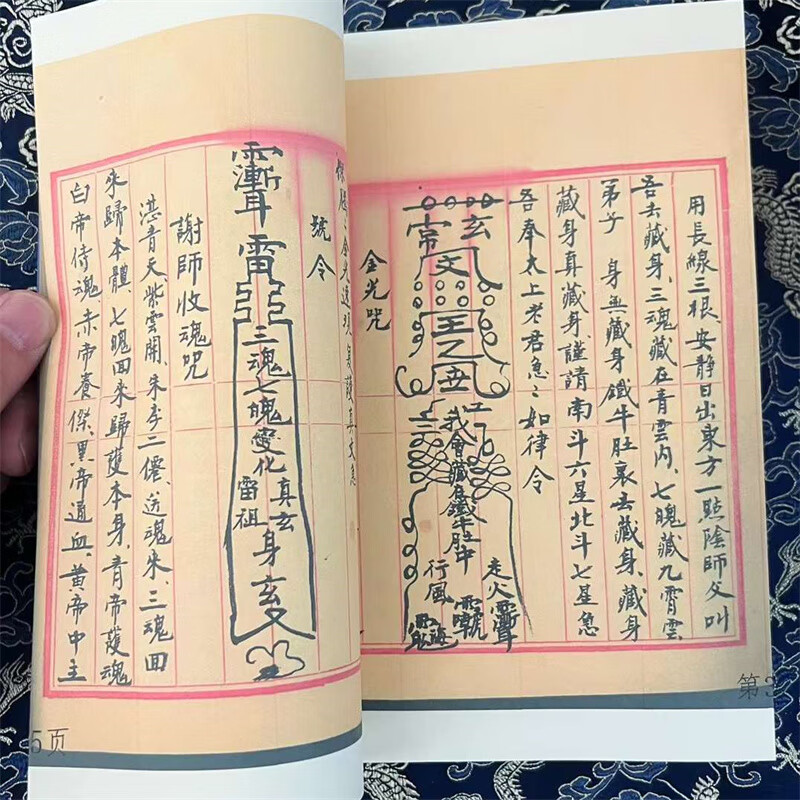 用長線三根、安靜日出東方一點陰師父叫
吾去藏身、三魂藏在青雲内、七魄藏九霄雲
弟子 身無藏身鐵牛肚裏去藏身、藏身
藏身真藏身、謹請南斗六星北斗七星急
吾奉太上老君急〻如律令
玄
常
文
王之
我會藏在鐵牛肚中
走火
行風
金光咒
第3
金光
護真文急
號令
雷
三魂七魄變化
真玄
雷祖
身玄
謝師收魂咒
湛青天紫雲開、朱李二僊、送魂來、三魂回
來歸本體、七魄回來歸護本身、青帝護魂
白帝侍魂、赤帝養傑、黑帝通血、黄帝中主
5页